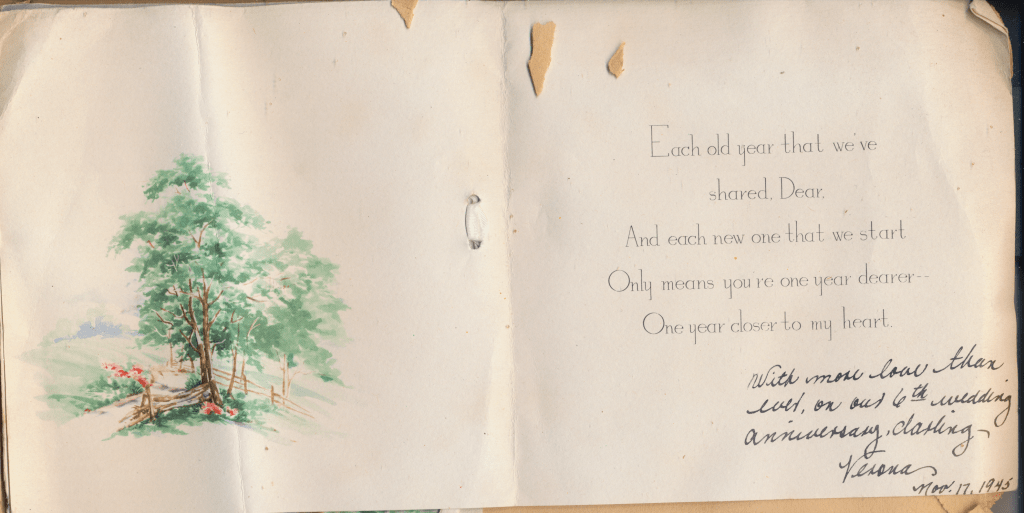 Each old year that we've
shared, Dear,
And each new one that we start
Only means you're one year dearer--
One year closer to my heart.
With more love than
ever, on our 6th wedding
anniversary, darling
Verona
Nov. 17, 1945